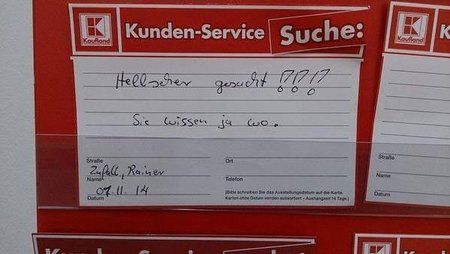 Kaufland
Kunden-Service Suche:
Hellseher gesucht !!!!
Sie wissen ja wo.
Straße
Ort
Zufall, Rainer
Name
Telefon
07.11.14
Datum
(Bitte schreiben Sie das Ausstellungsdatum auf die Karte.
Karten ohne Datum werden aussortiert – Aushangzeit 14 Tage.)
Kaufland